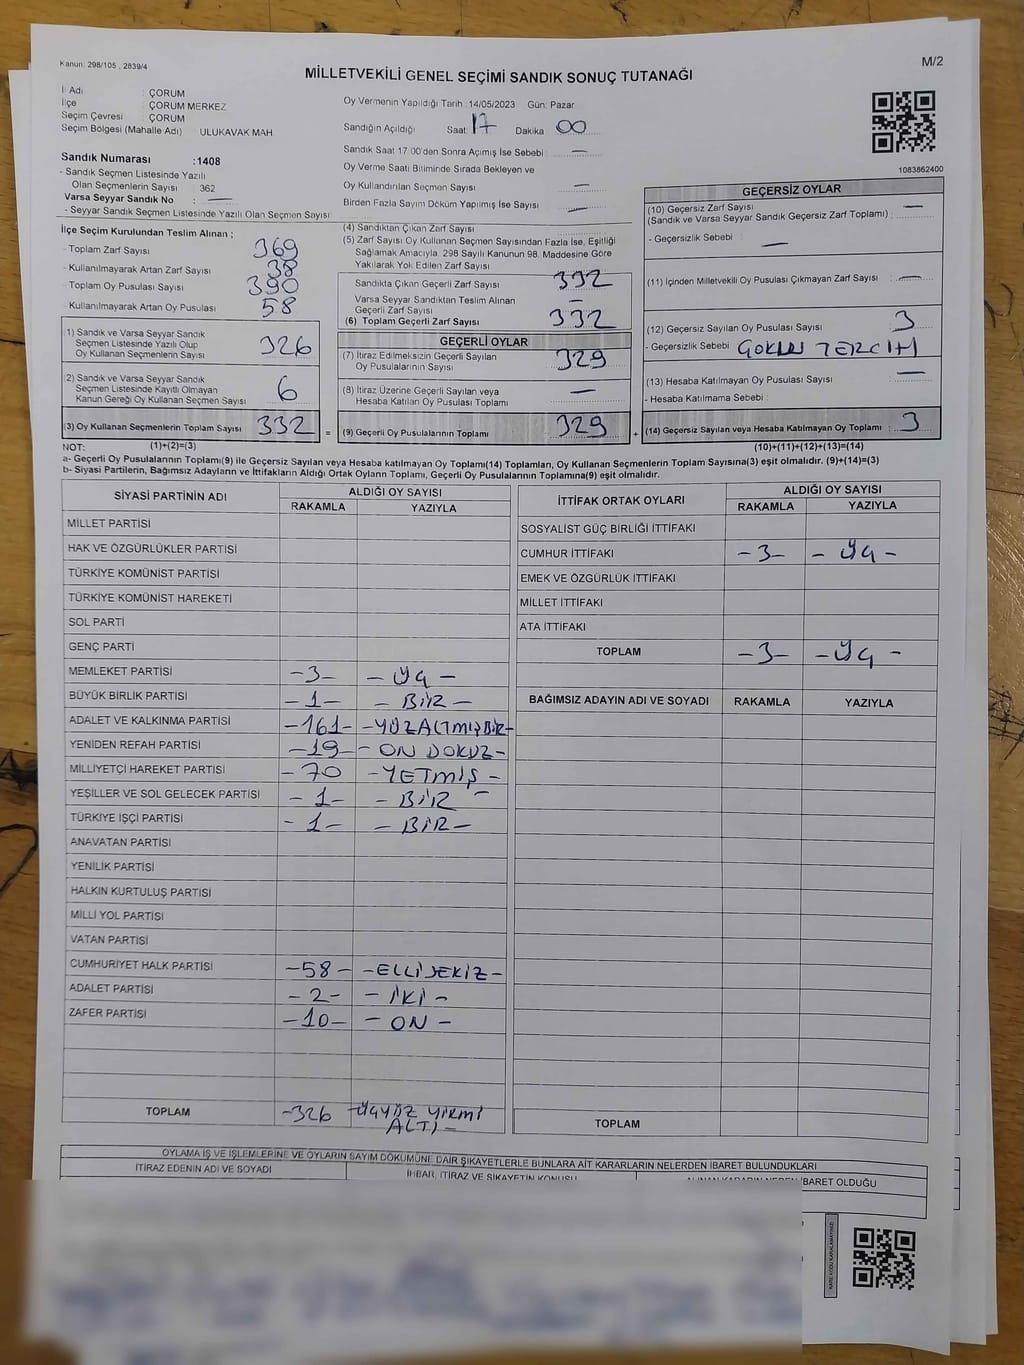 Kanun: 298/105 , 2839/4
M/2
MİLLETVEKİLİ GENEL SEÇİMİ SANDIK SONUÇ TUTANAĞI
İl Adı : ÇORUM
İlçe : ÇORUM MERKEZ
Seçim Çevresi : ÇORUM
Seçim Bölgesi (Mahalle Adı) : ULUKAVAK MAH.
Sandık Numarası :1408
- Sandık Seçmen Listesinde Yazılı
Olan Seçmenlerin Sayısı 362
Varsa Seyyar Sandık No : —
- Seyyar Sandık Seçmen Listesinde Yazılı Olan Seçmen Sayısı
Oy Vermenin Yapıldığı Tarih :14/05/2023 Gün: Pazar
Sandığın Açıldığı Saat 17 Dakika 00
Sandık Saat 17:00'den Sonra Açımış İse Sebebi : —
Oy Verme Saati Bitiminde Sırada Bekleyen ve
Oy Kullandırılan Seçmen Sayısı —
Birden Fazla Sayım Döküm Yapılmış İse Sayısı —
1083862400
İlçe Seçim Kurulundan Teslim Alınan ;
- Toplam Zarf Sayısı 369
- Kullanılmayarak Artan Zarf Sayısı 38
- Toplam Oy Pusulası Sayısı 390
- Kullanılmayarak Artan Oy Pusulası 58
1) Sandık ve Varsa Seyyar Sandık
Seçmen Listesinde Yazılı Olup
Oy Kullanan Seçmenlerin Sayısı 326
2) Sandık ve Varsa Seyyar Sandık
Seçmen Listesinde Kayıtlı Olmayan
Kanun Gereği Oy Kullanan Seçmen Sayısı 6
(3) Oy Kullanan Seçmenlerin Toplam Sayısı 332 =
(4) Sandıktan Çıkan Zarf Sayısı
(5) Zarf Sayısı Oy Kullanan Seçmen Sayısından Fazla İse, Eşitliği
Sağlamak Amacıyla, 298 Sayılı Kanunun 98. Maddesine Göre
Yakılarak Yok Edilen Zarf Sayısı
Sandıkta Çıkan Geçerli Zarf Sayısı 332
Varsa Seyyar Sandıktan Teslim Alınan
Geçerli Zarf Sayısı —
(6) Toplam Geçerli Zarf Sayısı 332
GEÇERLİ OYLAR
(7) İtiraz Edilmeksizin Geçerli Sayılan
Oy Pusulalarının Sayısı 329
(8) İtiraz Üzerine Geçerli Sayılan veya
Hesaba Katılan Oy Pusulası Toplamı —
(9) Geçerli Oy Pusulalarının Toplamı 329 +
GEÇERSİZ OYLAR
(10) Geçersiz Zarf Sayısı —
(Sandık ve Varsa Seyyar Sandık Geçersiz Zarf Toplamı) :
- Geçersizlik Sebebi : —
(11) İçinden Milletvekili Oy Pusulası Çıkmayan Zarf Sayısı : —
(12) Geçersiz Sayılan Oy Pusulası Sayısı : 3
- Geçersizlik Sebebi :
(13) Hesaba Katılmayan Oy Pusulası Sayısı : —
- Hesaba Katılmama Sebebi :
(14) Geçersiz Sayılan veya Hesaba Katılmayan Oy Toplamı : 3
NOT: (1)+(2)=(3) (10)+(11)+(12)+(13)=(14)
a- Geçerli Oy Pusulalarının Toplamı(9) ile Geçersiz Sayılan veya Hesaba katılmayan Oy Toplamı(14) Toplamları, Oy Kullanan Seçmenlerin Toplam Sayısına(3) eşit olmalıdır. (9)+(14)=(3)
b- Siyasi Partilerin, Bağımsız Adayların ve İttifakların Aldığı Ortak Oyların Toplamı, Geçerli Oy Pusulalarının Toplamına(9) eşit olmalıdır.
SİYASİ PARTİNİN ADI ALDIĞI OY SAYISI
RAKAMLA YAZIYLA
MİLLET PARTİSİ
HAK VE ÖZGÜRLÜKLER PARTİSİ
TÜRKİYE KOMÜNİST PARTİSİ
TÜRKİYE KOMÜNİST HAREKETİ
SOL PARTİ
GENÇ PARTİ
MEMLEKET PARTİSİ -3- - ÜÇ -
BÜYÜK BİRLİK PARTİSİ -1- - BİR -
ADALET VE KALKINMA PARTİSİ -161- -YÜZALTMIŞBİR-
YENİDEN REFAH PARTİSİ -19- - ON DOKUZ -
MİLLİYETÇİ HAREKET PARTİSİ -70 -YETMİŞ -
YEŞİLLER VE SOL GELECEK PARTİSİ -1- - BİR -
TÜRKİYE İŞÇİ PARTİSİ -1- - BİR -
ANAVATAN PARTİSİ
YENİLİK PARTİSİ
HALKIN KURTULUŞ PARTİSİ
MİLLİ YOL PARTİSİ
VATAN PARTİSİ
CUMHURİYET HALK PARTİSİ -58- -ELLİSEKİZ-
ADALET PARTİSİ -2- - İKİ -
ZAFER PARTİSİ -10- - ON -
TOPLAM -326 -ÜÇYÜZ YİRMİ
ALTI -
İTTİFAK ORTAK OYLARI ALDIĞI OY SAYISI
RAKAMLA YAZIYLA
SOSYALİST GÜÇ BİRLİĞİ İTTİFAKI
CUMHUR İTTİFAKI -3- - ÜÇ -
EMEK VE ÖZGÜRLÜK İTTİFAKI
MİLLET İTTİFAKI
ATA İTTİFAKI
TOPLAM -3- - ÜÇ -
BAĞIMSIZ ADAYIN ADI VE SOYADI RAKAMLA YAZIYLA
TOPLAM
OYLAMA İŞ VE İŞLEMLERİNE VE OYLARIN SAYIM DÖKÜMÜNE DAİR ŞİKAYETLERLE BUNLARA AİT KARARLARIN NELERDEN İBARET BULUNDUKLARI
İTİRAZ EDENİN ADI VE SOYADI İHBAR, İTİRAZ VE ŞİKAYETİN KONUSU ALINAN KARARIN NEDEN İBARET OLDUĞU